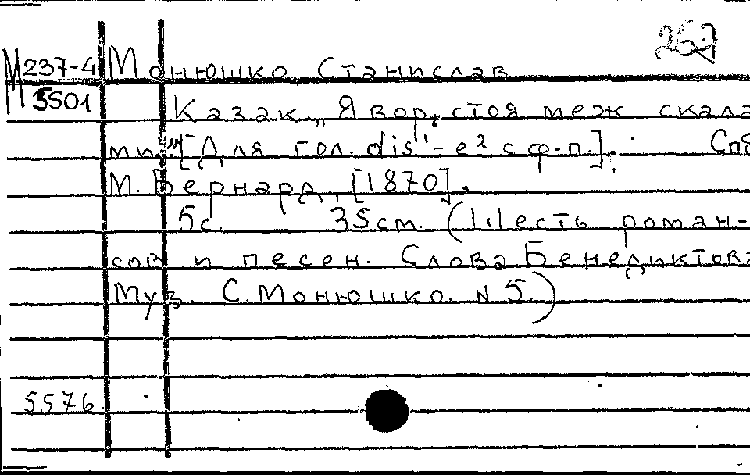 М 237-4 Монюшко Станислав
3501 Казак. „Явор, стоя меж скала
ми..." [Для гол. dis¹-e² с ф-п.]. Спб
М. Бернард, [1870].
5с. 35см. (Шесть роман-
сов и песен. Слова Бенедиктов
Муз. С. Монюшко. N 5.)
5576